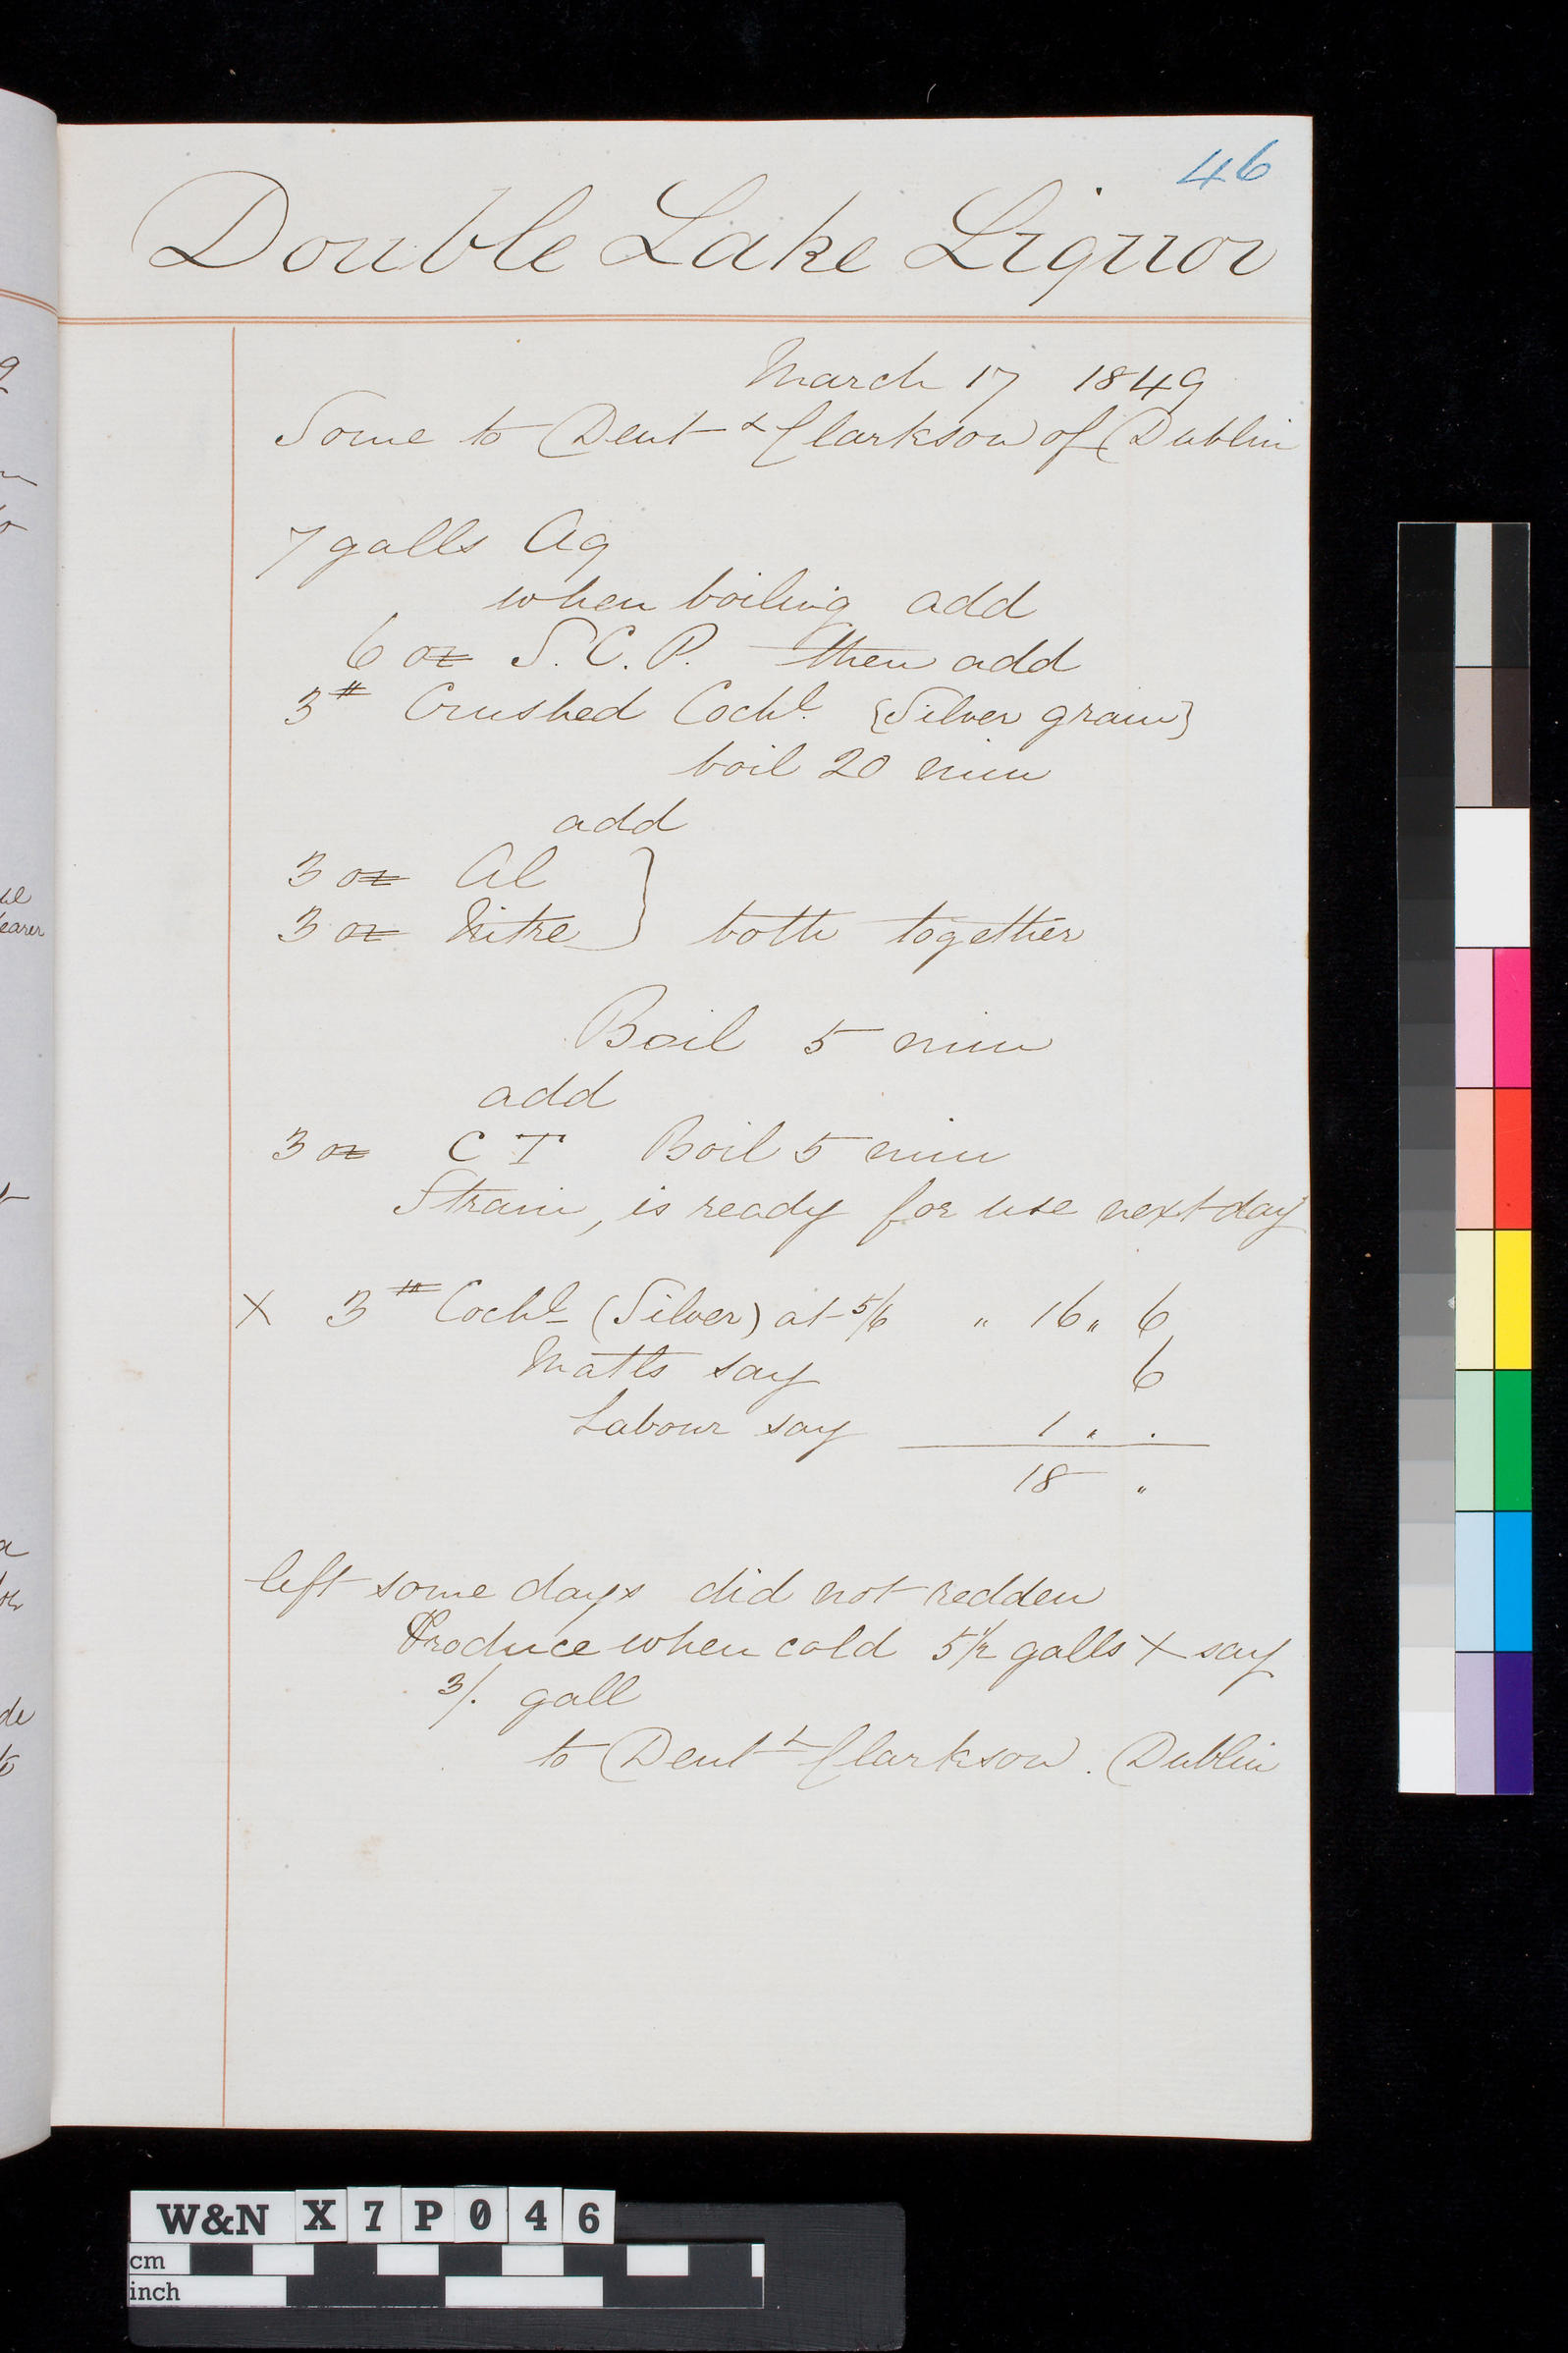 46
Double Lake Liquor
March 17 1849
Some to Dent & Clarkson of Dublin
7 galls Aq
when boiling add
6 oz S.C.P. then add
3# Crushed Cochl. {Silver grain}
boil 20 min
add
3 oz Al
3 oz Nitre } both together
Boil 5 min
add
3 oz C T Boil 5 min
Strain, is ready for use next day
X 3# Cochl (Silver) at 5/6 " 16 " 6
Matls say 6
Labour say 1 " .
18 "
left some days did not redden
Produce when cold 5 1/2 galls X say
3/. gall
to Dent & Clarkson. Dublin
W&N X7P046
cm
inch